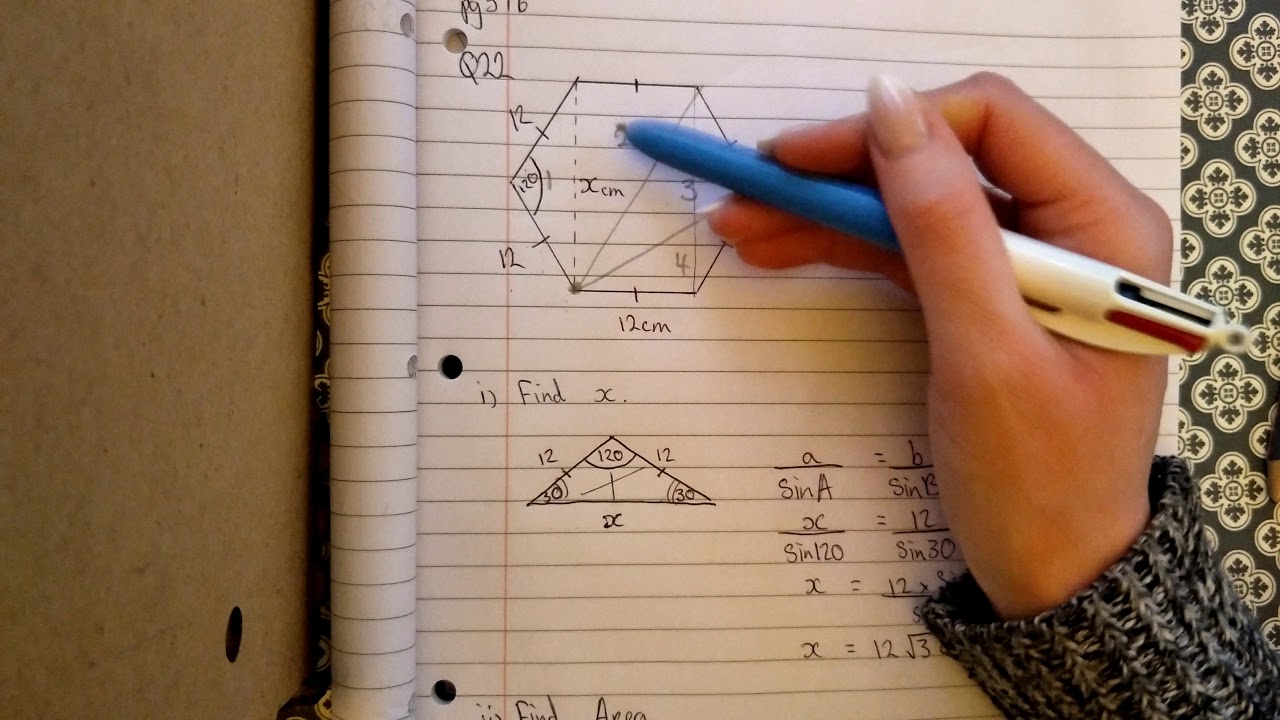 pg316
Q22
12
2
120 1 x cm 3
12
4
12cm
i) Find x.
12 120 12
30 30
x
a = b
sinA sinB
x = 12
sin120 sin30
x = 12 ×
x = 12√3
ii) Find Area